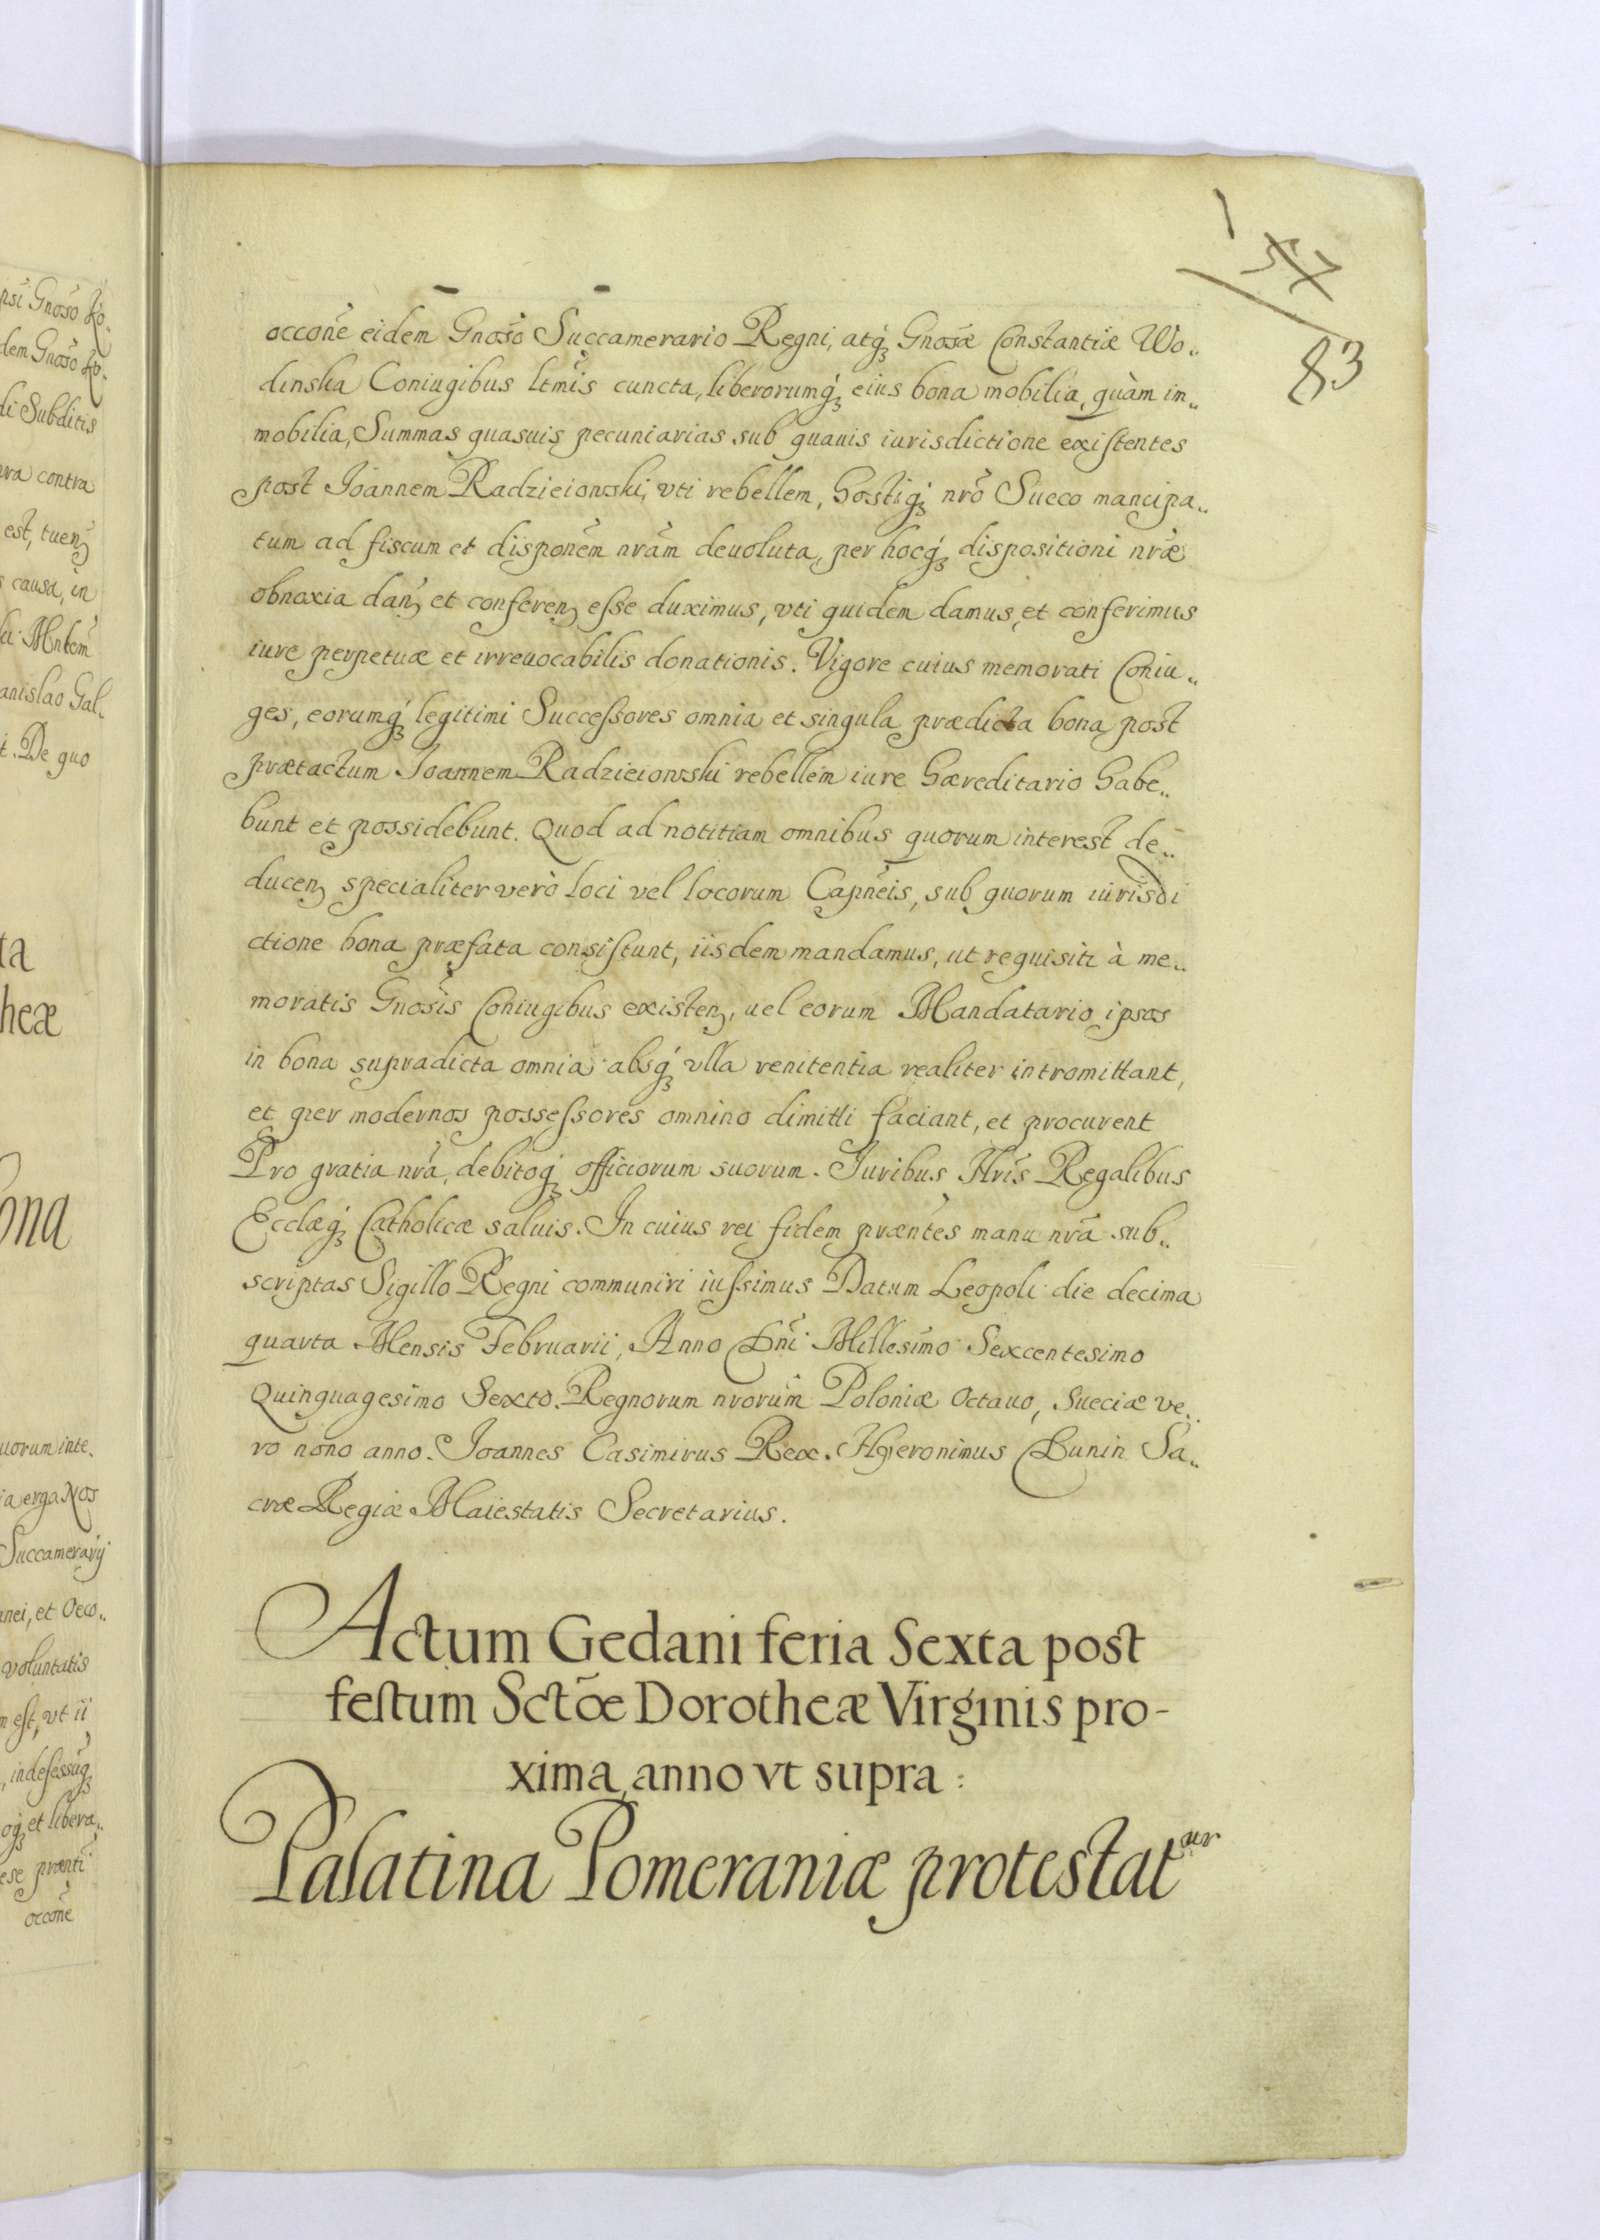 57
83
occone͂ eidem Gnoso͂ Succamerario Regni, atq́ꝫ Gnosæ͂ Constantiæ Wo„
dinska Coniugibus ltmi͂s cuncta, liberorumq́ꝫ eius bona mobilia, quàm im„
mobilia, Summas quasuis pecuniarias sub quauis iurisdictione existentes
post Joannem Radzieiowski, vti rebellem, hostiqꝫ nro͂ Sueco mancipa„
tum ad fiscum et disponem͂ nra͂m deuoluta, per hocq́ꝫ dispositioni nræ͂
obnoxia danꝫ et conferenꝫ esse duximus, vti quidem damus, et conferimus
iure perpetuæ et irreuocabilis donationis. Vigore cuius memorati Coniu„
ges, eorumq́ꝫ legitimi Successores omnia et singula prædicta bona post
prætactum Joannem Radzieiowski rebellem iure hæreditario habe„
bunt et possidebunt. Quod ad notitiam omnibus quorum interest de„
ducenꝫ specialiter verò loci vel locorum Capne͂is, sub quorum iurisdi
ctione bona præfata consistunt, iisdem mandamus, ut requisiti à me„
moratis Gnosi͂s Coniugibus existenꝫ, uel eorum Mandatario, ipsos
in bona supradicta omnia absq́ꝫ vlla renitentia realiter intromittant,
et per modernos possessores omnino dimitti faciant, et procurent
Pro gratia nra͂, debitoq́ꝫ officiorum suorum. Juribus Nri͂s Regalibus
Ecclæq́ꝫ Catholicæ saluis. In cuius rei fidem præntes͂ manu nra͂ sub„
scriptas Sigillo Regni communiri iussimus Datum Leopoli die decima
quarta Mensis Februarii, Anno Dni͂ Millesimo Sexcentesimo
Quinquagesimo Sexto. Regnorum nrorum͂ Poloniæ Octauo, Sueciæ ve„
ro nono anno. Joannes Casimirus Rex. Hyeronimus Dunin Sa„
cræ Regiæ Maiestatis Secretarius.
Actum Gedani feria Sexta post
festum Sctõe Dorotheæ Virginis pro-
xima, anno vt supra:
Palatina Pomeraniæ protestatur